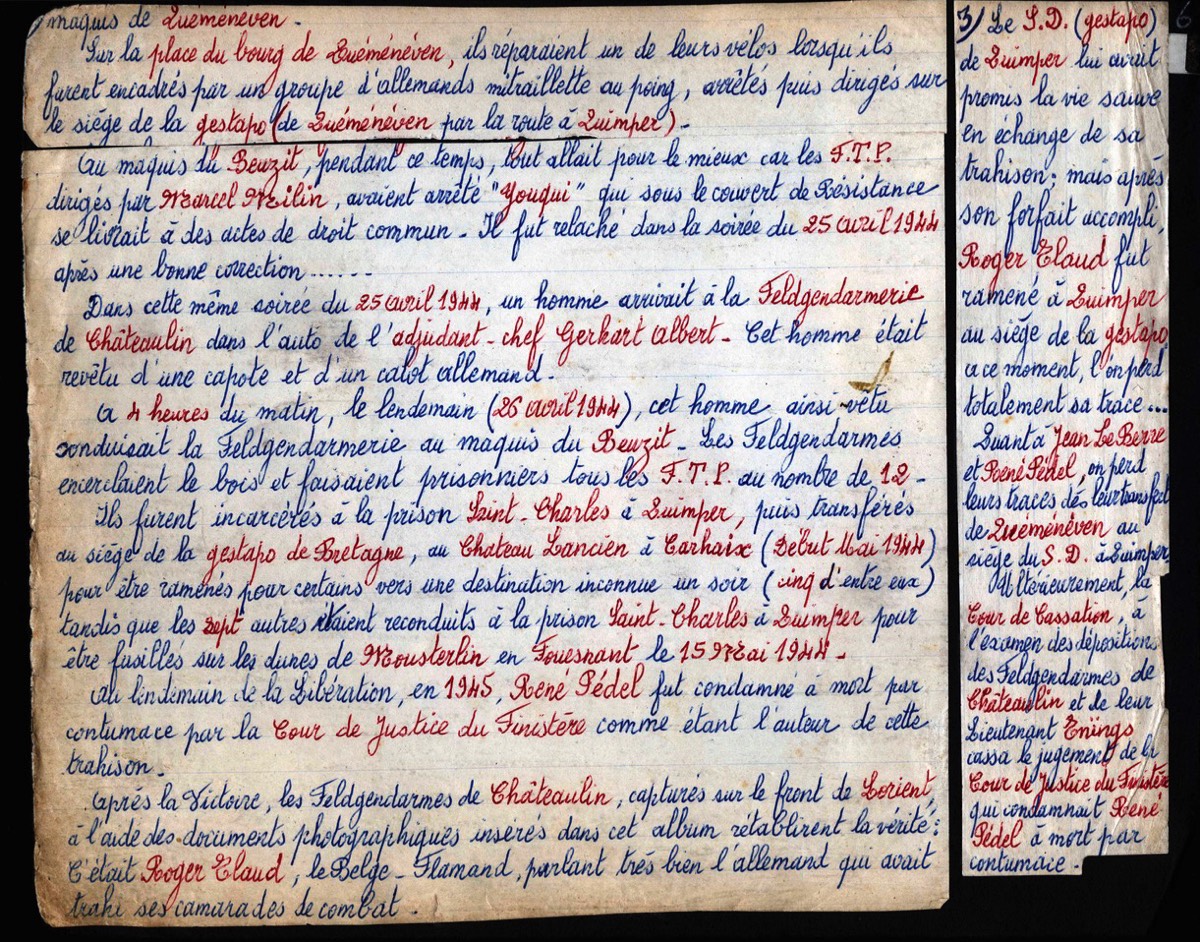 maquis de Quéménéven -
Sur la place du bourg de Quéménéven, ils réparaient un de leurs vélos lorsqu'ils
furent encadrés par un groupe d'allemands mitraillette au poing, arrêtés puis dirigés sur
le siège de la gestapo (de Quéménéven par la route à Quimper) -
Au maquis du Beuzit, pendant ce temps, tout allait pour le mieux car les F.T.P.
dirigés par Marcel Meilin, avaient arrêté "Youqui" qui sous le couvert de Résistance
se livrait à des actes de droit commun - Il fut relaché dans la soirée du 25 avril 1944
après une bonne correction ......
Dans cette même soirée du 25 avril 1944, un homme arrivait à la Feldgendarmerie
de Châteaulin dans l'auto de l'adjudant-chef Gerhart Albert - Cet homme était
revêtu d'une capote et d'un calot allemand -
A 4 heures du matin, le lendemain (26 avril 1944), cet homme ainsi vêtu
conduisait la Feldgendarmerie au maquis du Beuzit - Les Feldgendarmes
encerclaient le bois et faisaient prisonniers tous les F.T.P. au nombre de 12 -
Ils furent incarcérés à la prison Saint-Charles à Quimper, puis transférés
au siège de la gestapo de Bretagne, au Chateau Lancien à Carhaix (Début Mai 1944)
pour être ramenés pour certains vers une destination inconnue un soir (cinq d'entre eux)
tandis que les sept autres étaient reconduits à la prison Saint-Charles à Quimper pour
être fusillés sur les dunes de Mousterlin en Fouesnant le 15 Mai 1944 -
Au lendemain de la Libération, en 1945, René Pédel fut condamné à mort par
contumace par la Cour de Justice du Finistère comme étant l'auteur de cette
trahison -
Après la Victoire, les Feldgendarmes de Châteaulin, capturés sur le front de Lorient,
à l'aide des documents photographiques insérés dans cet album rétablirent la vérité:
C'était Roger Elaud, le Belge-Flamand, parlant très bien l'allemand qui avait
trahi ses camarades de combat -
3) Le S.D. (gestapo) 6
de Quimper lui avait
promis la vie sauve
en échange de sa
trahison; mais après
son forfait accompli,
Roger Elaud fut
ramené à Quimper
au siège de la gestapo
a ce moment, l'on perd
totalement sa trace ...
Quant à Jean Le Berre
et René Pédel, on perd
leurs traces dès leur transfert
de Quéménéven au
siège du S.D. à Quimper
Ultérieurement, la
Cour de Cassation, à
l'examen des dépositions
des Feldgendarmes de
Châteaulin et de leur
Lieutenant Enüngs
cassa le jugement de la
Cour de Justice du Finistère
qui condamnait René
Pédel à mort par
contumace -